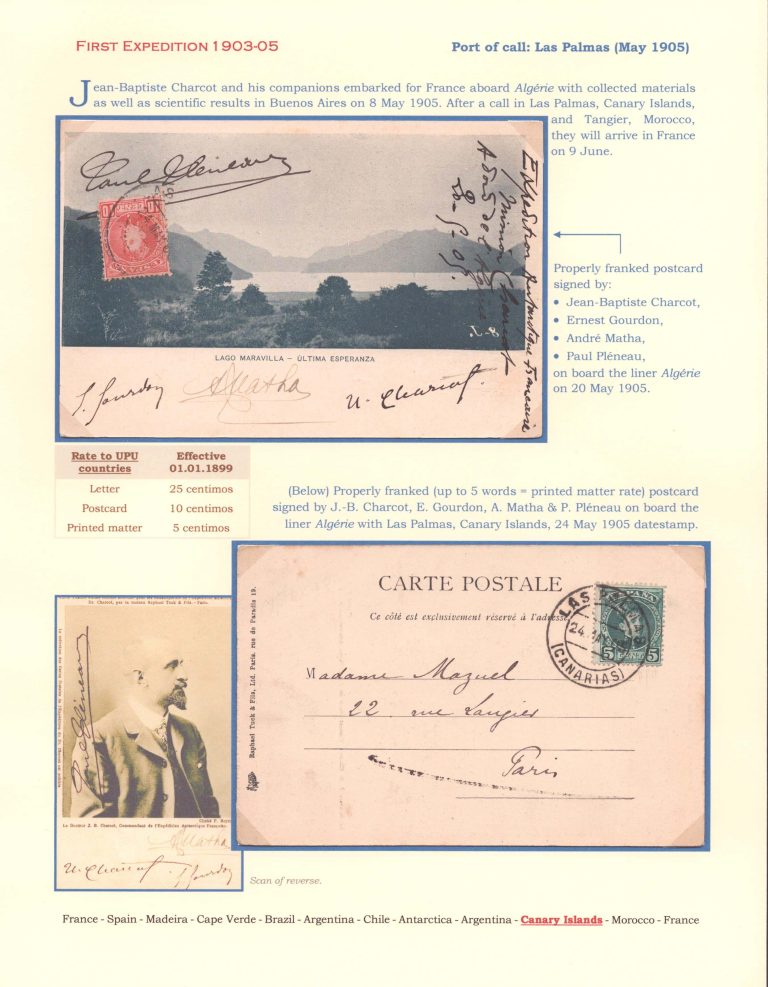 FIRST EXPEDITION 1903-05
Port of call: Las Palmas (May 1905)
Jean-Baptiste Charcot and his companions embarked for France aboard Algérie with collected materials
as well as scientific results in Buenos Aires on 8 May 1905. After a call in Las Palmas, Canary Islands,
and Tangier, Morocco,
they will arrive in France
on 9 June.
Paul Pléneau
Expédition Antarctique Française
Mission Charcot
A bord de l'Algérie
20-5-05.
LAGO MARAVILLA – ÚLTIMA ESPERANZA
E. Gourdon
A Matha
J. Charcot.
Properly franked postcard
signed by:
• Jean-Baptiste Charcot,
• Ernest Gourdon,
• André Matha,
• Paul Pléneau,
on board the liner Algérie
on 20 May 1905.
Rate to UPU countries
Effective 01.01.1899
Letter 25 centimos
Postcard 10 centimos
Printed matter 5 centimos
(Below) Properly franked (up to 5 words = printed matter rate) postcard
signed by J.-B. Charcot, E. Gourdon, A. Matha & P. Pléneau on board the
liner Algérie with Las Palmas, Canary Islands, 24 May 1905 datestamp.
CARTE POSTALE
Ce côté est exclusivement réservé à l'adresse
Raphael Tuck & Fils, Ltd. Paris. rue de Paradis 19.
ESPAÑA
5 5
LAS PALMAS
24
(CANARIAS)
Madame Mazuel
22 rue Laugier
Paris
Dr. Charcot, par la maison Raphael Tuck & Fils. - Paris.
Paul Pléneau
Cliché P.
Le Docteur J. B. Charcot, Commandant de l'Expédition Antarctique Française
A Matha
J. Charcot
E. Gourdon
Scan of reverse.
France - Spain - Madeira - Cape Verde - Brazil - Argentina - Chile - Antarctica - Argentina - Canary Islands - Morocco - France